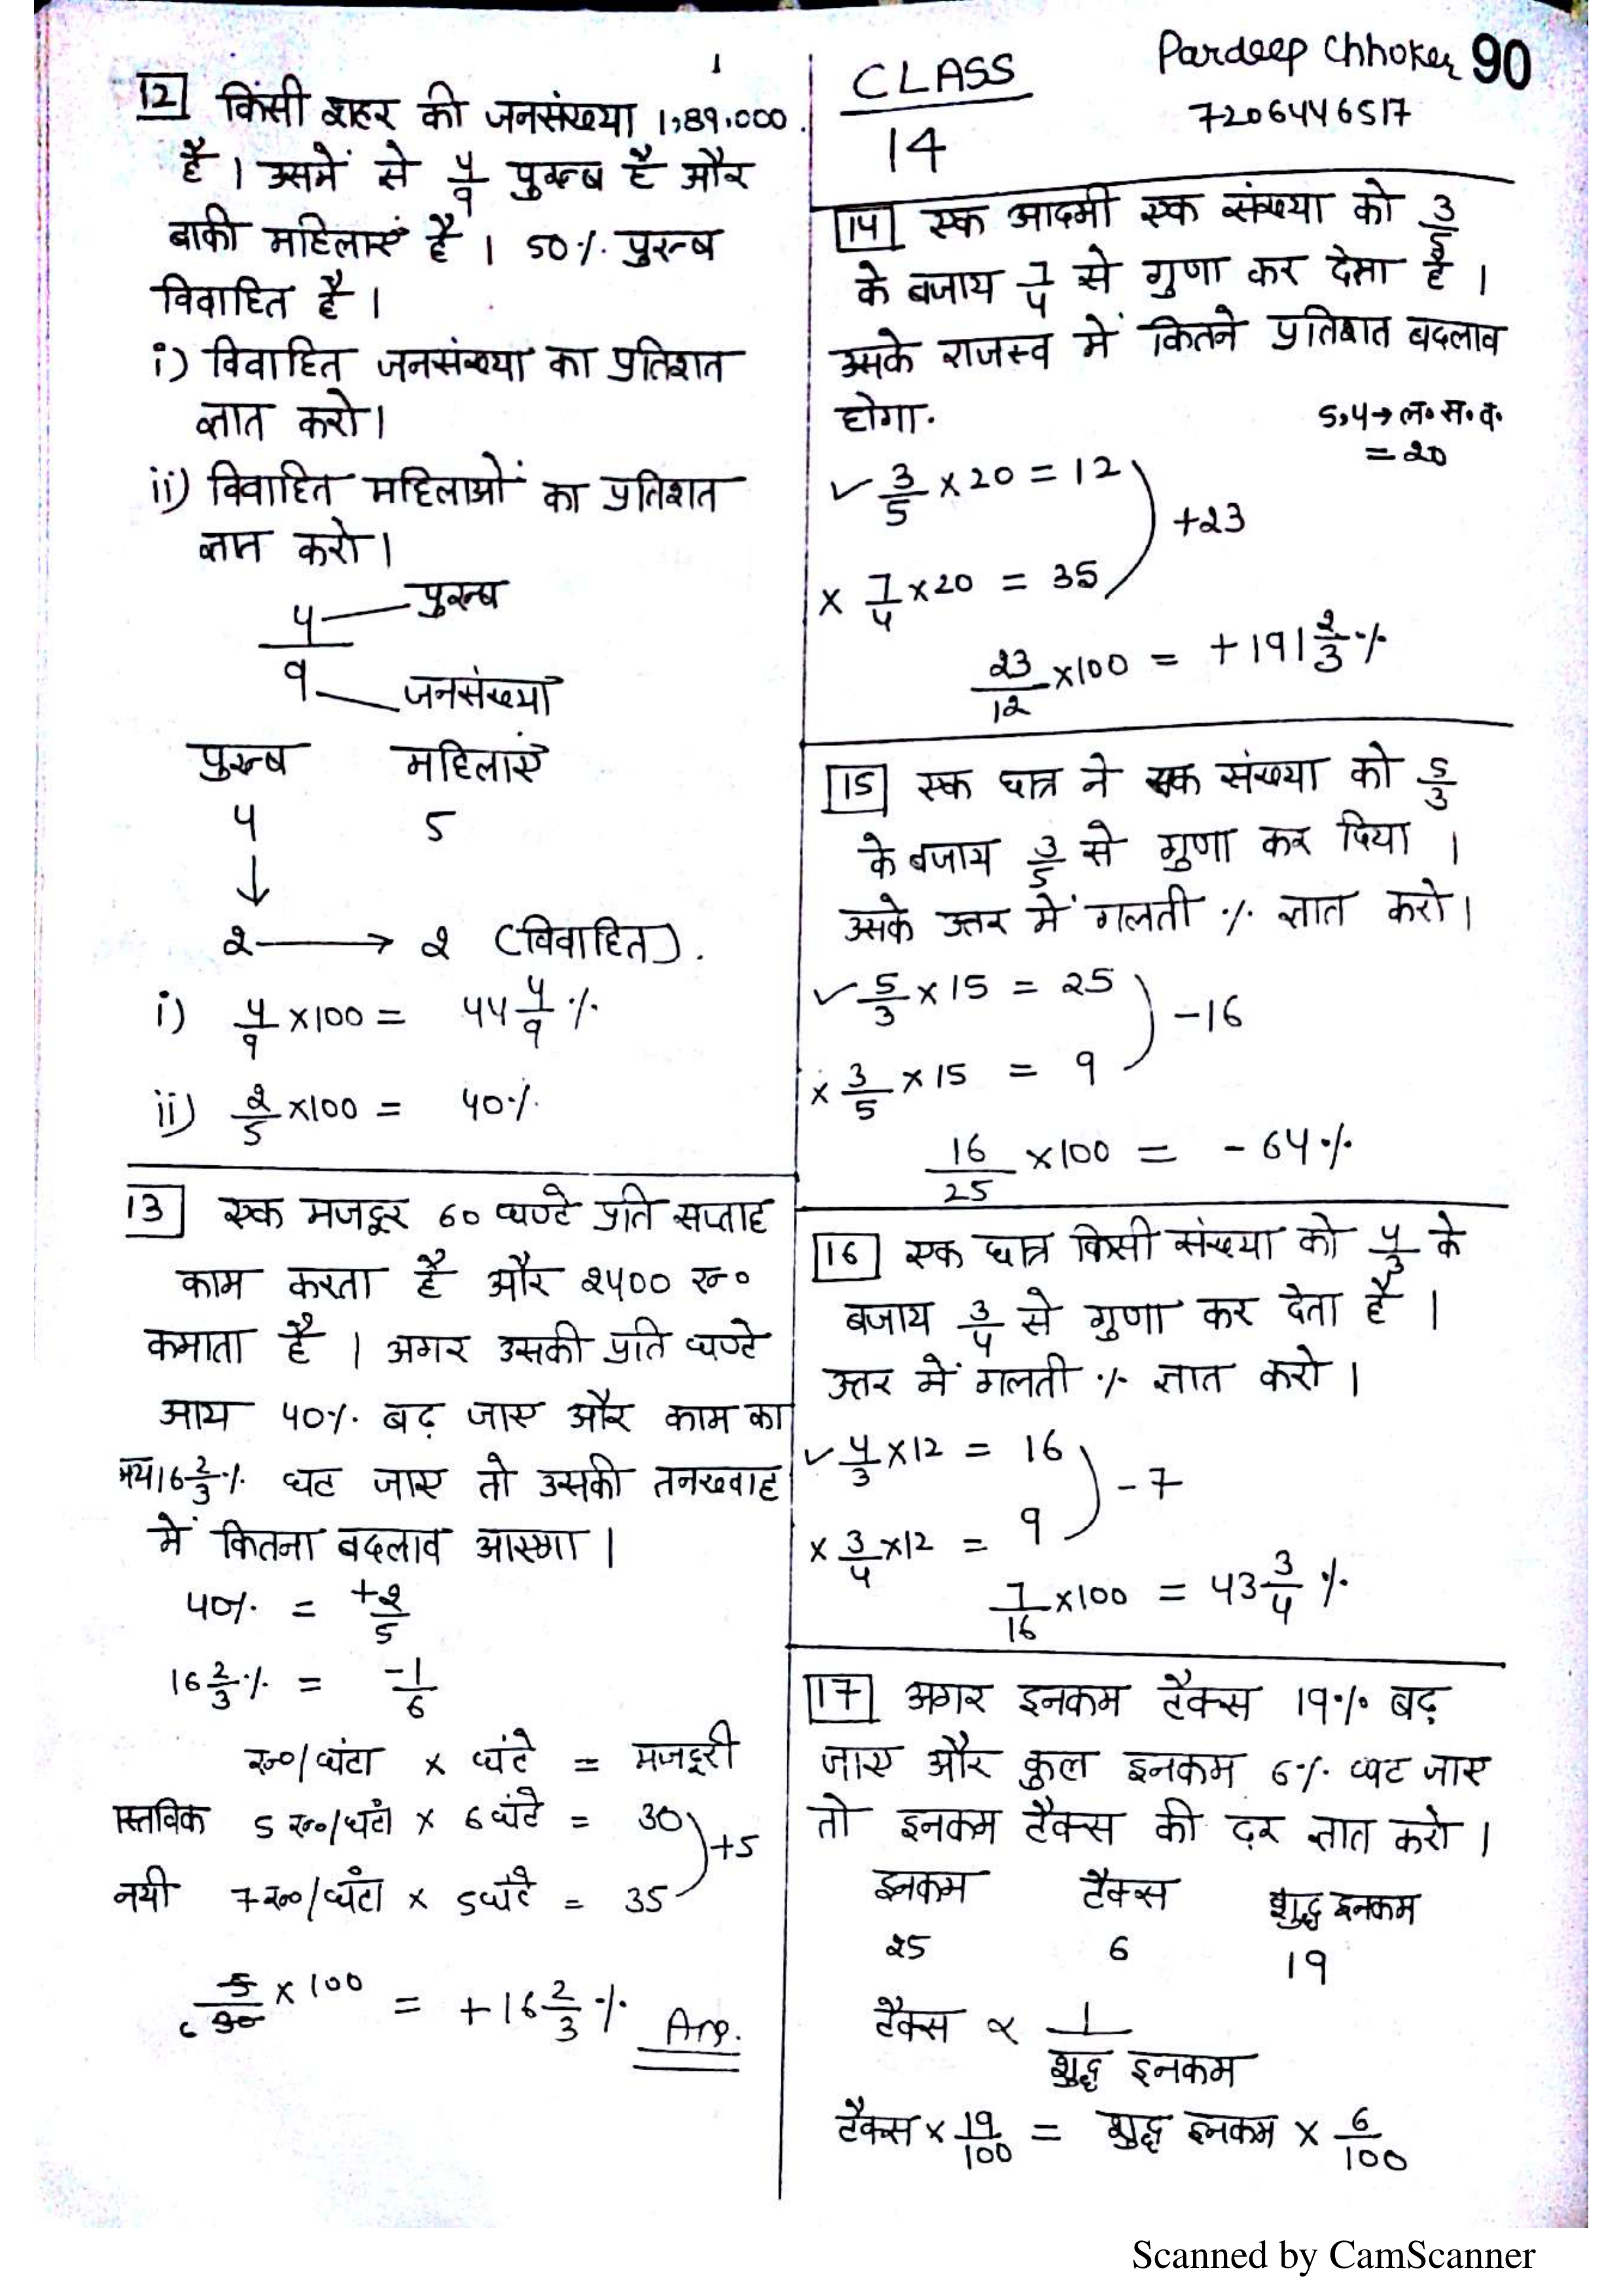 12 किसी शहर की जनसंख्या 1,89,000
है । उसमें से 4/9 पुरूष है और
बाकी महिलाएं है । 50% पुरूष
विवाहित है ।
i) विवाहित जनसंख्या का प्रतिशत
ज्ञात करो ।
ii) विवाहित महिलाओं का प्रतिशत
ज्ञात करो ।
4/9
पुरूष
जनसंख्या
पुरूष महिलाएं
4 5
↓
2 → 2 (विवाहित).
i) 4/9 ×100 = 44 4/9 %
ii) 2/5 ×100 = 40%
13 एक मजदूर 60 घण्टे प्रति सप्ताह
काम करता है और 2400 रू०
कमाता है । अगर उसकी प्रति घण्टे
आय 40% बढ़ जाए और काम का
16 2/3 % घट जाए तो उसकी तनख्वाह
में कितना बदलाव आएगा ।
40% = +2/5
16 2/3 % = -1/6
रू०/घंटा × घंटे = मजदूरी
स्तविक 5 रू०/घंटा × 6 घंटे = 30
+5
नयी 7 रू०/घंटा × 5 घंटे = 35
5/30 × 100 = +16 2/3 % Ans.
CLASS
14
Pardeep Chhoker 90
7206446517
14 एक आदमी एक संख्या को 3/5
के बजाय 7/4 से गुणा कर देता है ।
उसके राजस्व में कितने प्रतिशत बदलाव
होगा.
5,4→ ल. स. व.
= 20
✓ 3/5 ×20 = 12
+23
× 7/4 ×20 = 35
23/12 ×100 = +191 2/3 %
15 एक छात्र ने एक संख्या को 5/3
के बजाय 3/5 से गुणा कर दिया ।
उसके उत्तर में गलती % ज्ञात करो ।
✓ 5/3 × 15 = 25
-16
× 3/5 × 15 = 9
16/25 ×100 = -64%
16 एक छात्र किसी संख्या को 4/3 के
बजाय 3/4 से गुणा कर देता है ।
उत्तर में गलती % ज्ञात करो ।
✓ 4/3 ×12 = 16
-7
× 3/4 ×12 = 9
7/16 ×100 = 43 3/4 %
17 अगर इनकम टैक्स 19% बढ़
जाए और कुल इनकम 6% घट जाए
तो इनकम टैक्स की दर ज्ञात करो ।
इनकम टैक्स शुद्ध इनकम
25 6 19
टैक्स ∝ 1/शुद्ध इनकम
टैक्स × 19/100 = शुद्ध इनकम × 6/100
Scanned by CamScanner